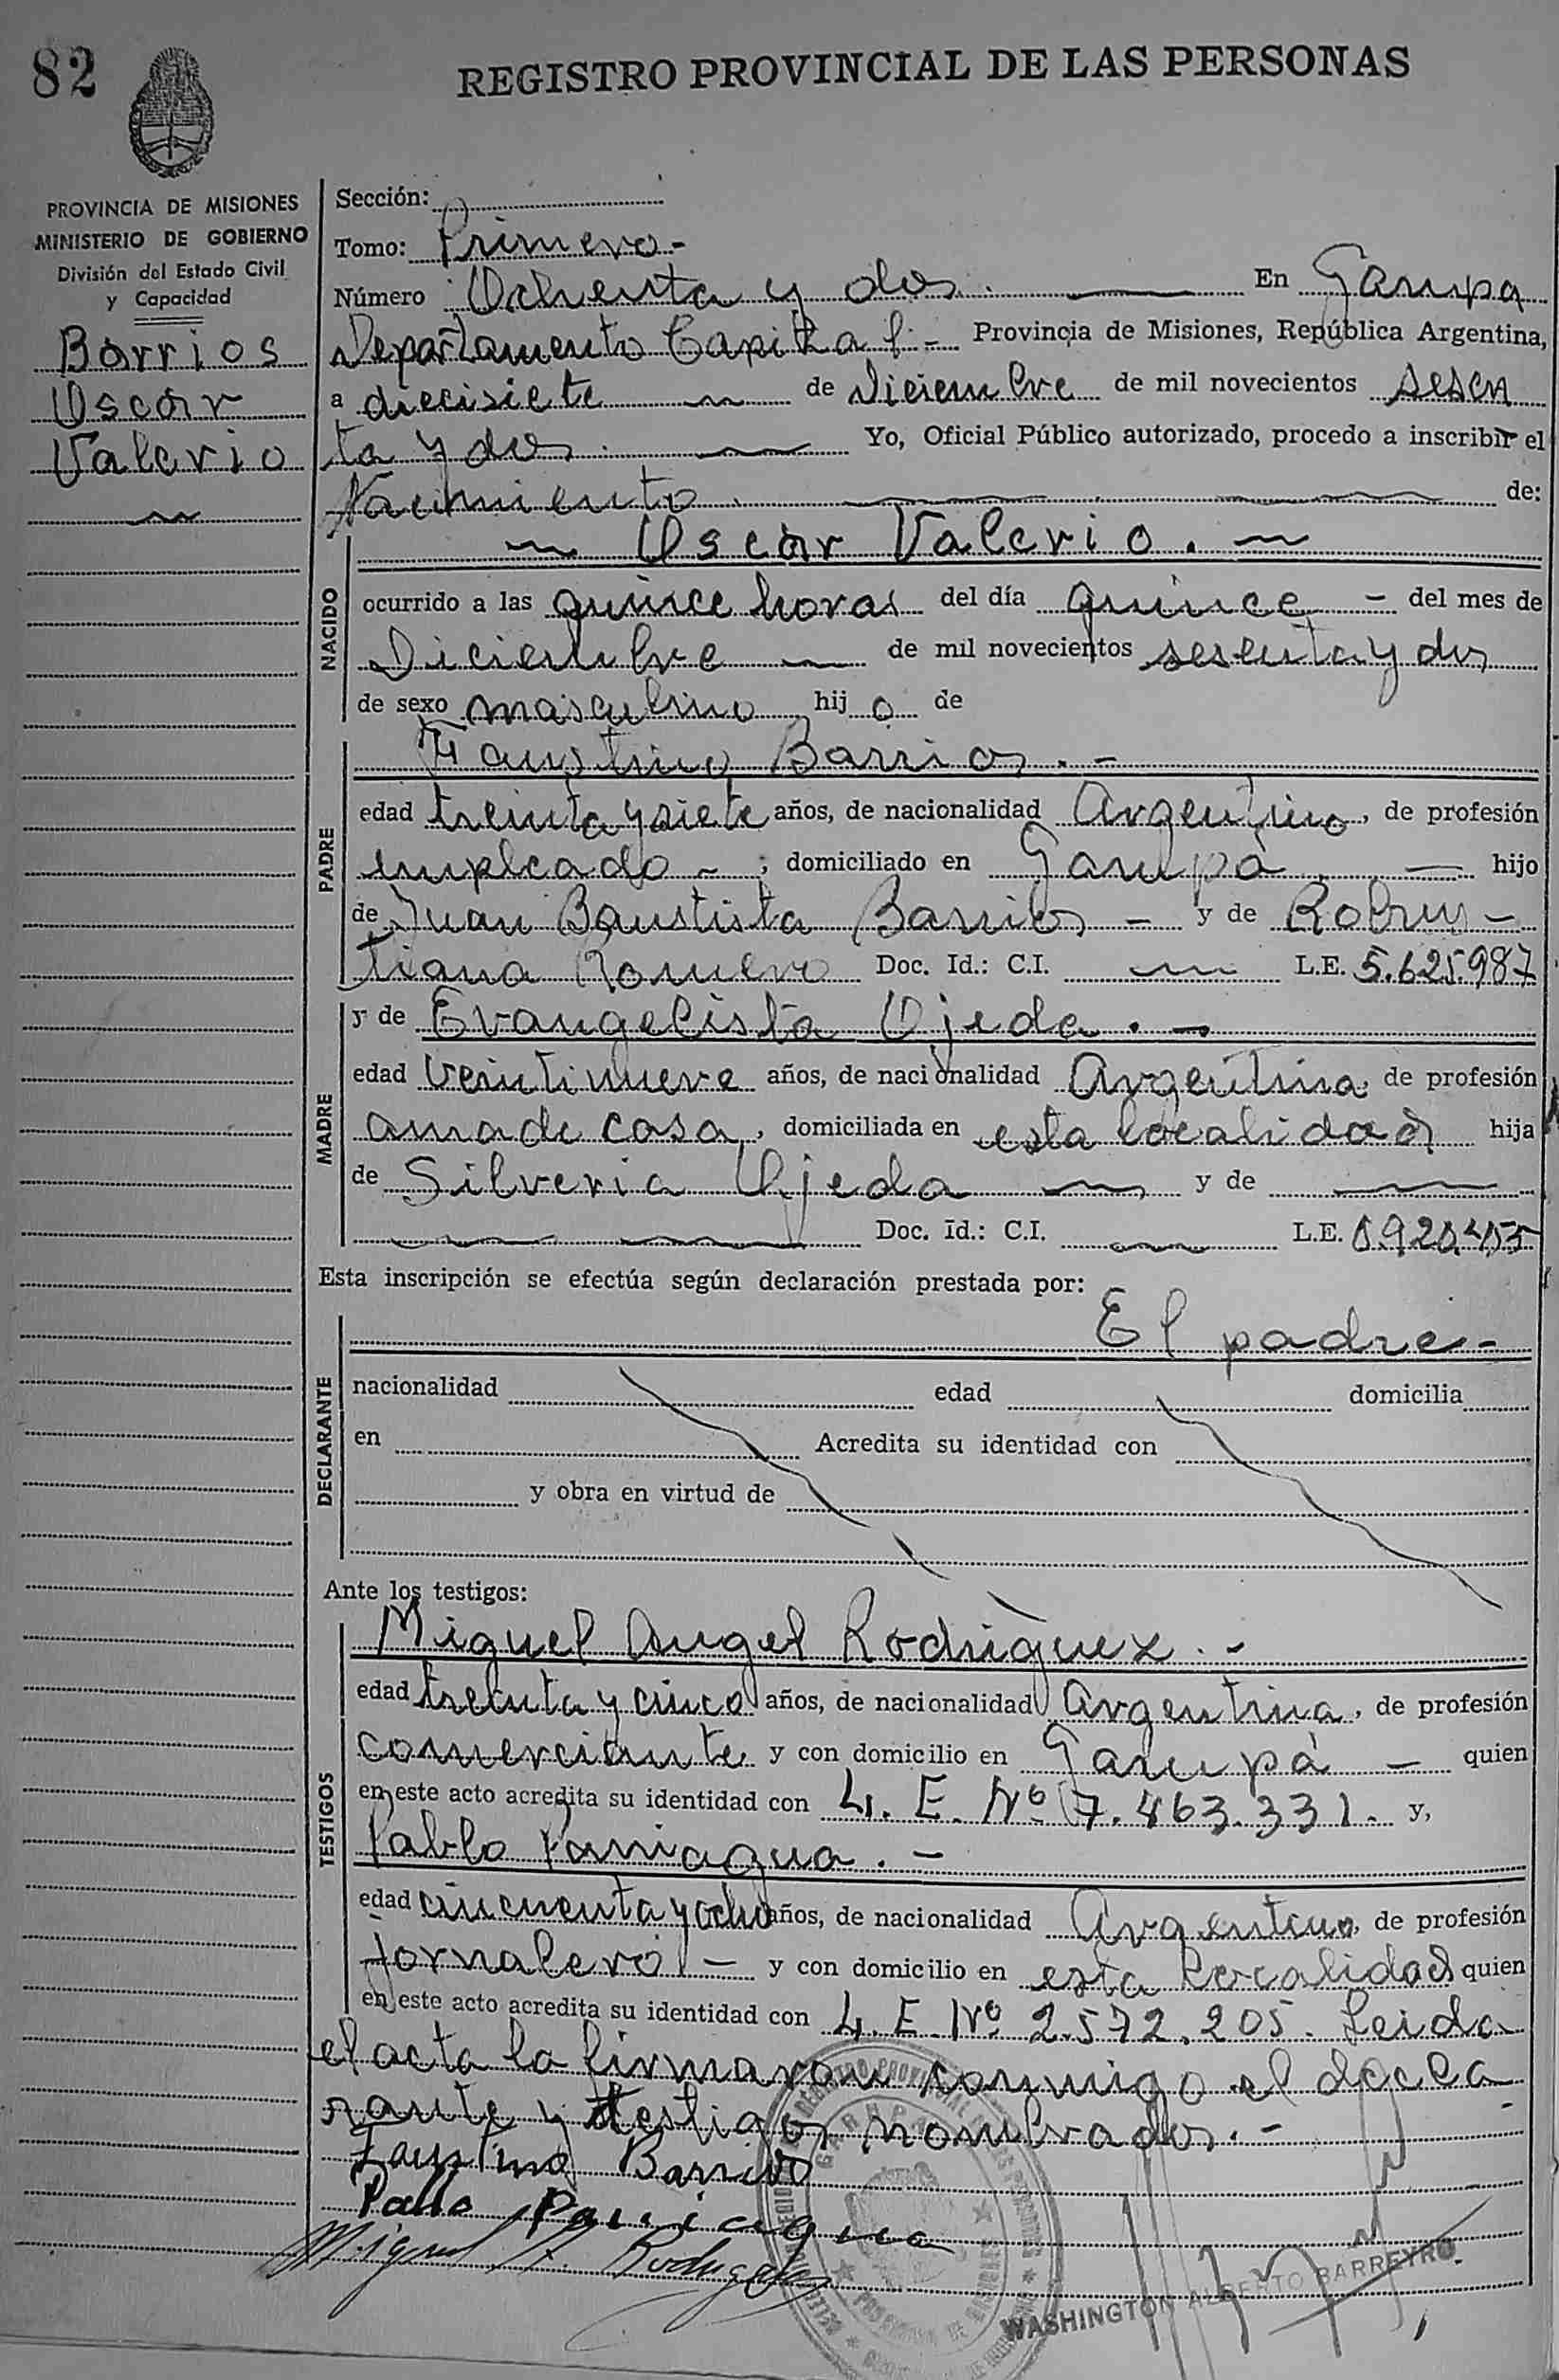 82
REGISTRO PROVINCIAL DE LAS PERSONAS
PROVINCIA DE MISIONES
MINISTERIO DE GOBIERNO
División del Estado Civil
y Capacidad
Barrios
Oscar
Valerio
Sección:
Tomo: Primero.-
Número Ochenta y dos. En Garupa
Departamento Capital.- Provincia de Misiones, República Argentina,
a diecisiete de Diciembre de mil novecientos sesen
ta y dos. Yo, Oficial Público autorizado, procedo a inscribir el
Nacimiento. de:
Oscar Valerio.
NACIDO
ocurrido a las quince horas del día quince - del mes de
Diciembre de mil novecientos sesenta y dos
de sexo masculino hijo de
PADRE
Faustino Barrios.-
edad treinta y siete años, de nacionalidad Argentino, de profesión
empleado - ; domiciliado en Garupá hijo
de Juan Bautista Barrios - y de Robus-
tiana Romero Doc. Id.: C.I. L.E. 5.625.987
MADRE
y de Evangelista Ojeda.-
edad veintinueve años, de nacionalidad Argentina, de profesión
ama de casa, domiciliada en esta localidad hija
de Silveria Ojeda y de
Doc. Id.: C.I. L.E.
Esta inscripción se efectúa según declaración prestada por:
El padre-
DECLARANTE
nacionalidad edad domicilia
en Acredita su identidad con
y obra en virtud de
Ante los testigos:
TESTIGOS
Miguel Angel Rodriguez.-
edad treinta y cinco años, de nacionalidad Argentina, de profesión
comerciante y con domicilio en Garupá - quien
en este acto acredita su identidad con L. E. Nº 7.463.331. y,
Pablo Paniagua.-
edad cincuenta y ocho años, de nacionalidad Argentino, de profesión
Jornalero - y con domicilio en esta localidad quien
en este acto acredita su identidad con L. E. Nº 2.572.205. Leida
el acta la firmaron conmigo el decla
rante y testigos nombrados.-
Faustino Barrios
Pablo Paniagua
Miguel A. Rodriguez
WASHINGTON ALBERTO BARREYRO